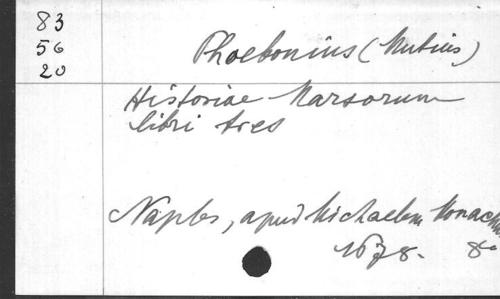 83
56
20
Phoebonius (Mutius)
Historiae Marsorum
libri tres
Naples, apud Michaelem Monach
1678. 8°